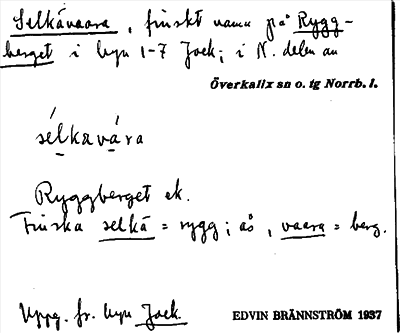 Selkävaara, finskt namn på Rygg-
berget i byn 1-7 Jock; i N. delen av
Överkalix sn o. tg Norrb. l.
sélkavára
Ryggberget ek.
Finska selkä = rygg; ås, vaara = berg.
Uppg. fr. byn Jock.
EDVIN BRÄNNSTRÖM 1937